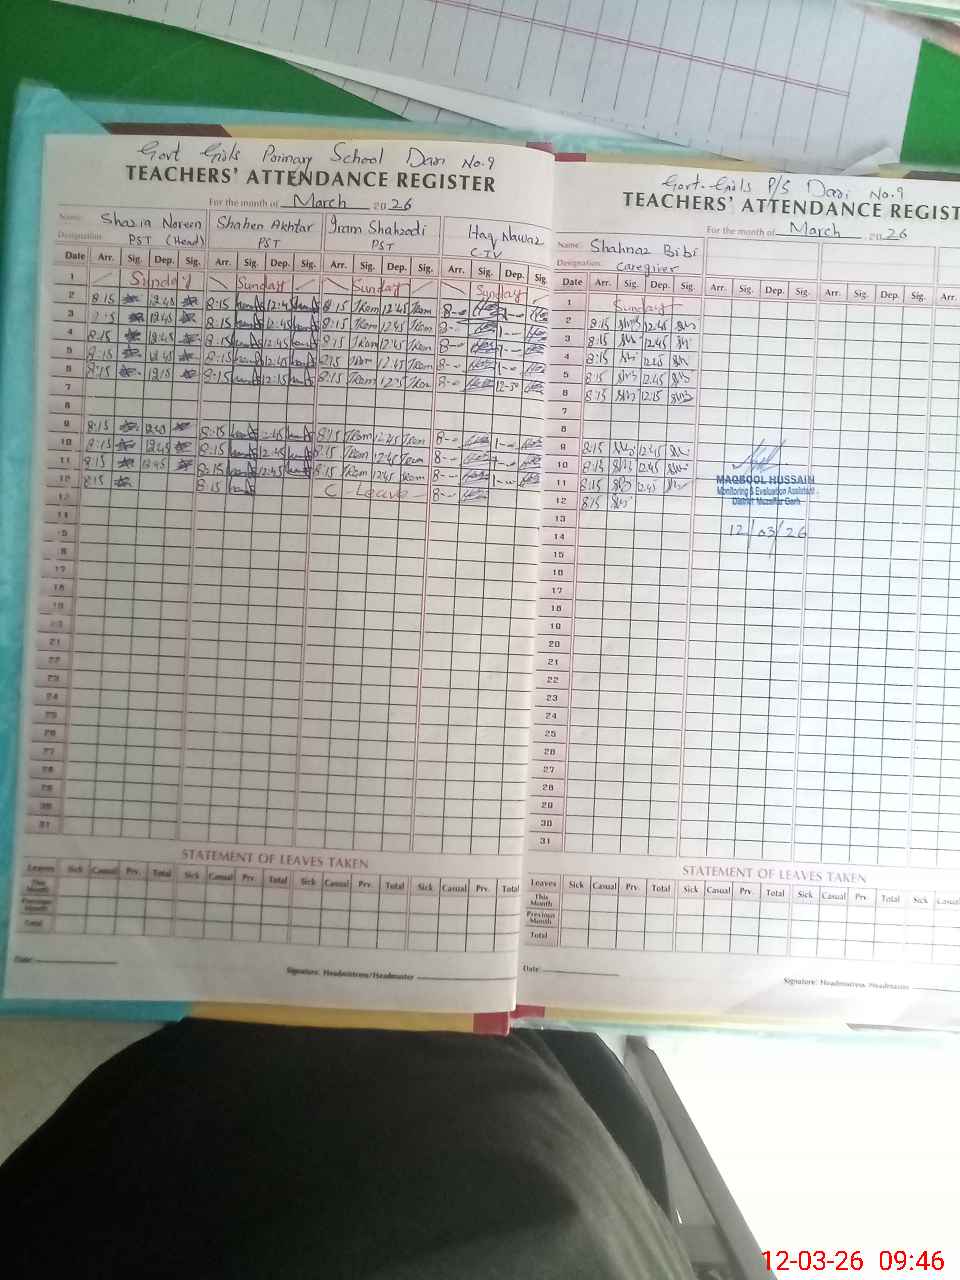 Govt Girls Primary School Dari No.9
TEACHERS' ATTENDANCE REGISTER
For the month of March 2026
Name: Shazia Noreen Shahen Akhtar Iram Shahzadi Haq Nawaz
Designation: PST (Head) PST PST C-IV
Date Arr. Sig. Dep. Sig. Arr. Sig. Dep. Sig. Arr. Sig. Dep. Sig. Arr. Sig. Dep. Sig.
1 Sunday Sunday Sunday Sunday
2 8:15 12:45 8:15 12:45 8:15 Iram 12:45 Iram 8-- 1--
3 12:45 8:15 12:45 8:15 Iram 12:45 Iram 8-- 1--
4 8:15 12:45 8:15 12:45 8:15 Iram 12:45 Iram 8-- 1--
5 8:15 12:45 8:15 12:45 8:15 Iram 12:45 Iram 8-- 1--
6 8:15 12:15 8:15 12:15 8:15 Iram 12:15 Iram 8-- 12-30
7
8
9 8:15 12:45 8:15 12:45 8:15 Iram 12:45 Iram 8-- 1--
10 8:15 12:45 8:15 12:45 8:15 Iram 12:45 Iram 8-- 1--
11 8:15 12:45 8:15 12:45 8:15 Iram 12:45 Iram 8-- 1--
12 8:15 8:15 C-Leave 8--
13
14
15
16
17
18
19
20
21
22
23
24
25
26
27
28
29
30
31
STATEMENT OF LEAVES TAKEN
Leaves Sick Casual Prv. Total Sick Casual Prv. Total Sick Casual Prv. Total Sick Casual Prv. Total
This Month
Previous Month
Total
Date:
Signature: Headmistress/Headmaster
Govt. Girls P/S Dari No.9
TEACHERS' ATTENDANCE REGIST
For the month of March 2026
Name: Shahnaz Bibi
Designation: Caregiver
Date Arr. Sig. Dep. Sig. Arr. Sig. Dep. Sig. Arr.
1 Sunday
2 8:15 12:45
3 8:15 12:45
4 8:15 12:45
5 8:15 12:45
6 8:15 12:15
7
8
9 8:15 12:45
10 8:15 12:45
11 8:15 12:45
12 8:15
13
14
15
16
17
18
19
20
21
22
23
24
25
26
27
28
29
30
31
MAQBOOL HUSSAIN
Monitoring & Evaluation Assistant
District Muzaffar Garh
12/03/26
STATEMENT OF LEAVES TAKEN
Leaves Sick Casual Prv. Total Sick Casual Prv. Total Sick Casual Prv. Total Sick Casual
This Month
Previous Month
Total
Date:
Signature: Headmistress/Headmaster
12-03-26 09:46